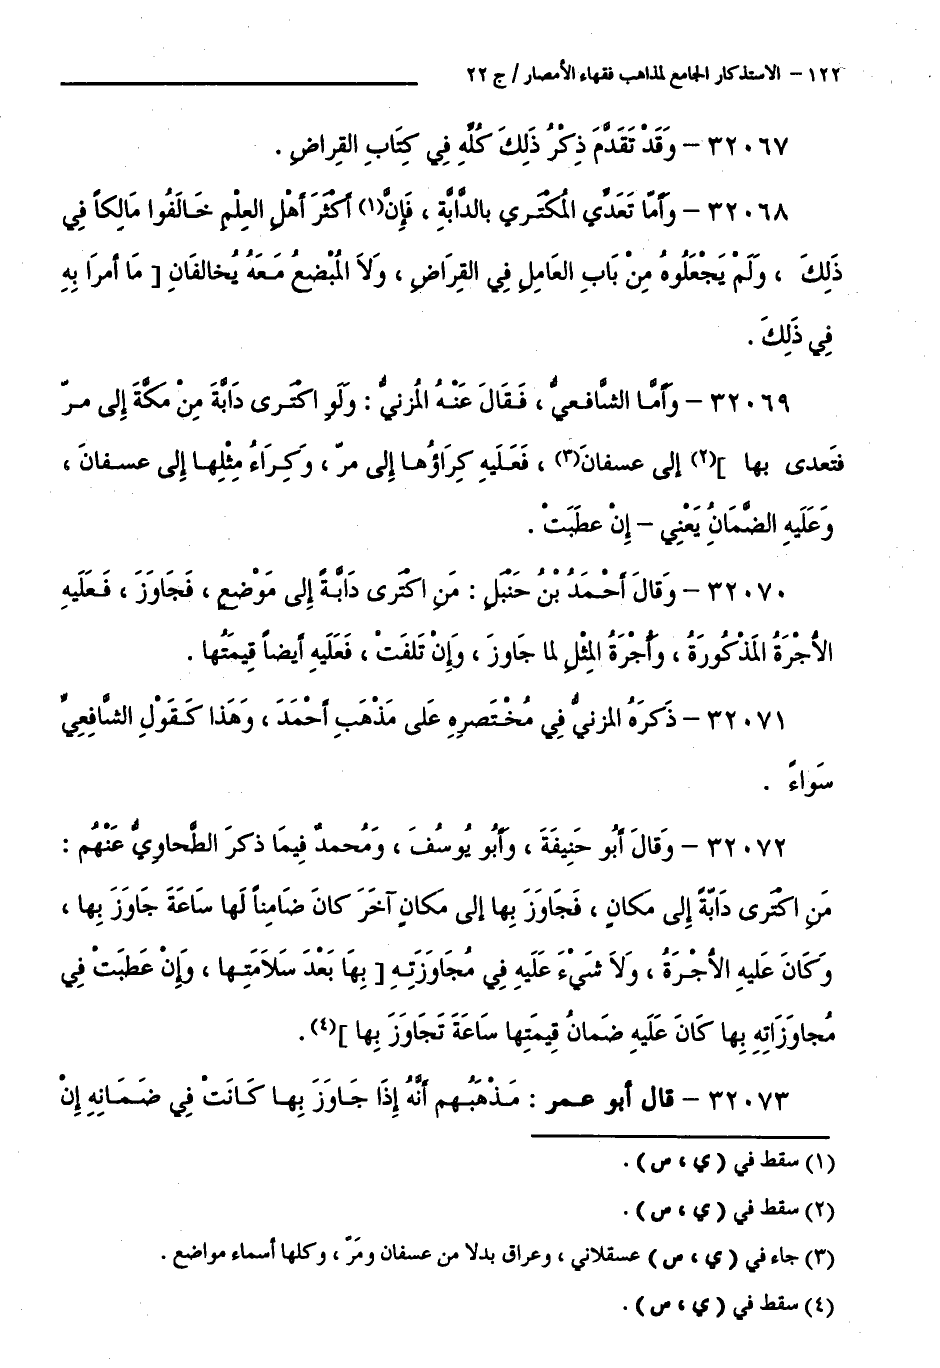 ١٢٢ – الاستذكار الجامع لمذاهب فقهاء الأمصار / ج ٢٢
٣٢٠٦٧ – وَقَدْ تَقَدَّمَ ذِكْرُ ذَلِكَ كُلِّهِ فِي كِتَابِ القِراضِ .
٣٢٠٦٨ – وأَمَّا تَعَدِّي المُكْتَرِي بالدَّابَّةِ ، فَإِنَّ(١) أَكْثَرَ أَهْلِ العِلْمِ خَالَفُوا مَالِكاً فِي
ذَلِكَ ، وَلَمْ يَجْعَلُوهُ مِنْ بَابِ العَامِلِ فِي القِرَاضِ ، وَلاَ المُبْضعُ مَعَهُ يُخالفَانِ [ مَا أمرَا بِهِ
فِي ذَلِكَ .
٣٢٠٦٩ – وأَمَّا الشَّافعيُّ ، فَقَالَ عَنْهُ المُزنيُّ : وَلَوِ اكْتَرى دَابَّةً مِنْ مَكَّةَ إِلى مرّ
فتَعدى بها ](٢) إلى عسفانَ(٣) ، فَعَلَيهِ كِرَاؤُها إِلى مرّ ، وَكِرَاءُ مِثْلِها إِلى عسفانَ ،
وَعَلَيهِ الضَّمَانُ يَعْنِي – إِنْ عطَبَتْ .
٣٢٠٧٠ – وَقَالَ أَحْمَدُ بْنُ حَنْبَلٍ : مَنِ اكْتَرى دَابَّةً إِلى مَوْضعٍ ، فَجَاوَزَ ، فَعَليهِ
الأُجْرَةُ المَذْكُورَةُ ، وأُجْرَةُ المِثْلِ لما جَاوزَ ، وَإِنْ تَلفَتْ ، فَعَلَيهِ أيضاً قِيمَتُها .
٣٢٠٧١ – ذَكَرَهُ المزنيُّ فِي مُخْتَصرِهِ عَلى مَذْهَبِ أَحْمَدَ ، وَهَذا كَقَوْلِ الشَّافِعِيِّ
سَوَاءً .
٣٢٠٧٢ – وَقَالَ أَبُو حَنِيفَةَ ، وأَبُو يُوسُفَ ، وَمُحمدٌ فِيمَا ذكرَ الطَّحاويُّ عَنْهُم :
مَنِ اكْتَرى دَابَّةً إِلى مَكانٍ ، فَجَاوَزَ بِها إلى مَكانٍ آخَرَ كانَ ضَامِناً لَها سَاعَةَ جَاوَزَ بِها ،
وَكَانَ عَليهِ الأُجْرَةُ ، وَلاَ شَيْءَ عَلَيهِ فِي مُجَاوَزَتِهِ [ بِهَا بَعْدَ سَلاَمَتِها ، وإِنْ عَطبَتْ فِي
مُجاوَزَاتِهِ بِها كَانَ عَلَيهِ ضَمانُ قِيمَتِها سَاعَةَ تَجَاوَزَ بِها ](٤).
٣٢٠٧٣ – قال أبو عمر : مَذْهَبُهم أَنَّهُ إِذَا جَاوَزَ بِها كَانَتْ فِي ضَمَانِهِ إِنْ
(١) سقط في ( ي ، ص ) .
(٢) سقط في ( ي ، ص ) .
(٣) جاء في ( ي ، ص ) عسقلاني ، وعراق بدلا من عسفان ومَرّ ، وكلها أسماء مواضع .
(٤) سقط في ( ي ، ص ) .